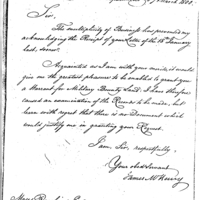 March 1800.
Sir,
The multiplicity of Business has prevented my
acknowledging the Receipt of your Letter of the 15 January
last, sooner.
Acquainted as I am with your merits, it would
give me the greatest pleasure to be enabled to grant you
a Warrant for Military Bounty Land. I have therefore
caused an examination of the Records to be made, but
learn with regret that there is no Document which
would justify me in granting your Request.
I am, Sir, respectfully,
Your obed Servant
James McHenry